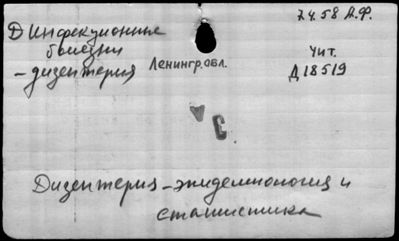 7.4.58 А.Ф.
Д Инфекционные
болезни
- дизентерия Ленингр. обл.
Чит.
Д 18519
Дизентерия - эпидемиология и
статистика